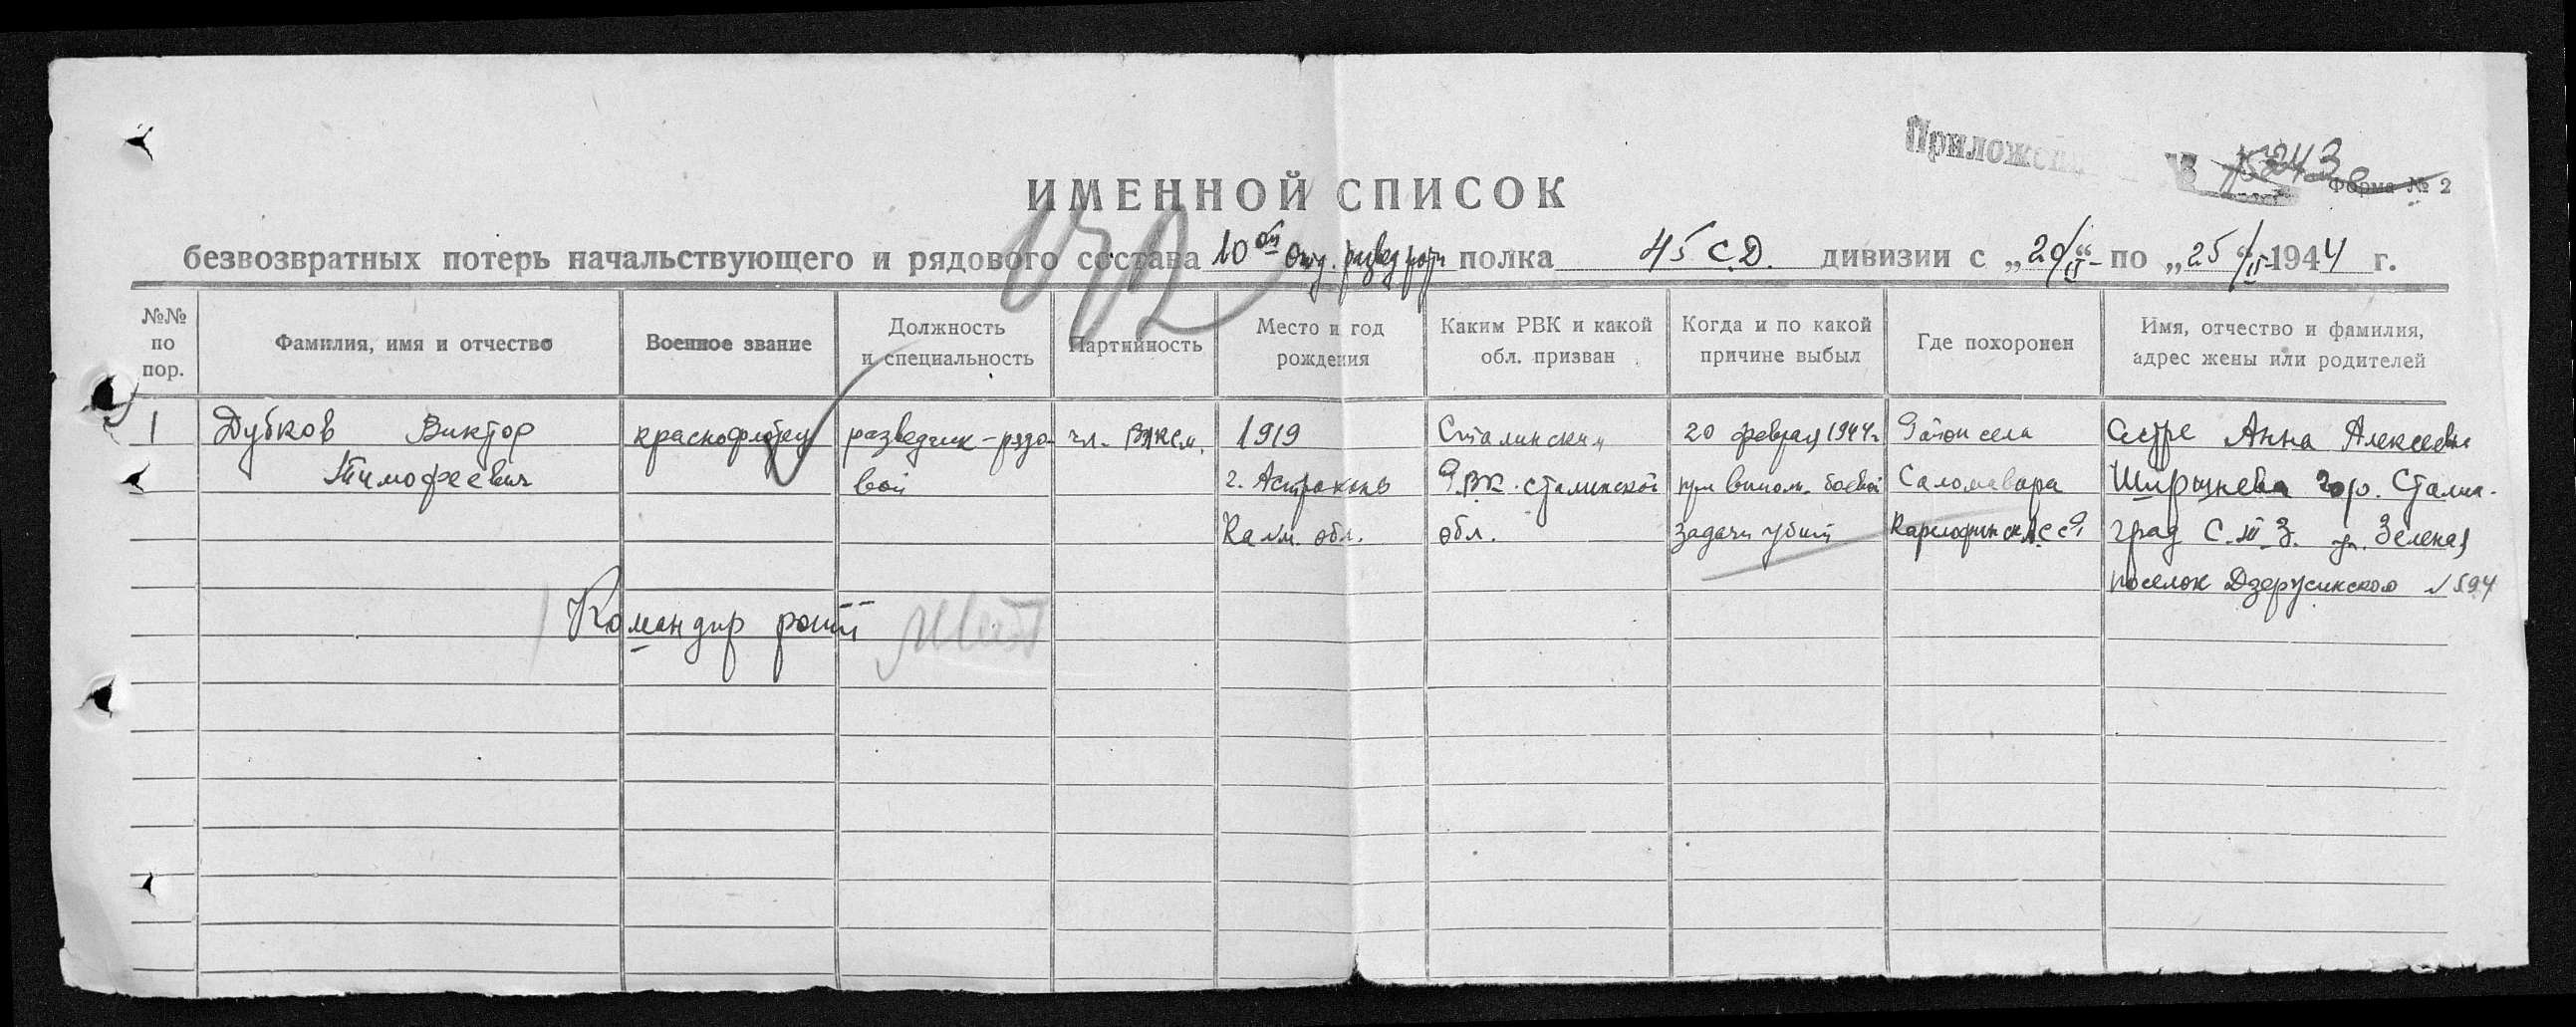 Приложе
5243
Форма № 2
ИМЕННОЙ СПИСОК
безвозвратных потерь начальствующего и рядового состава 10ой отд. развед роты полка 45 С.Д. дивизии с „20/II“ по „25“/II 1944 г.
№№ по пор.
Фамилия, имя и отчество
Военное звание
Должность и специальность
Партийность
Место и год рождения
Каким РВК и какой обл. призван
Когда и по какой причине выбыл
Где похоронен
Имя, отчество и фамилия, адрес жены или родителей
1 Дубков Виктор краснофлотец разведчик-рядо- чл. ВЛКСМ. 1919 Сталинским 20 февраля 1944г. Район села Сестре Анна Алексеевна
Тимофеевич вой г. Астрахань РВК. Сталинской при выполн. боевой Саломавара гор. Сталин-
Калм. обл. обл. задачи убит Карелофинск. ССР град С.Т.З. ул. Зеленая
поселок Дзержинского № 594
Командир роты